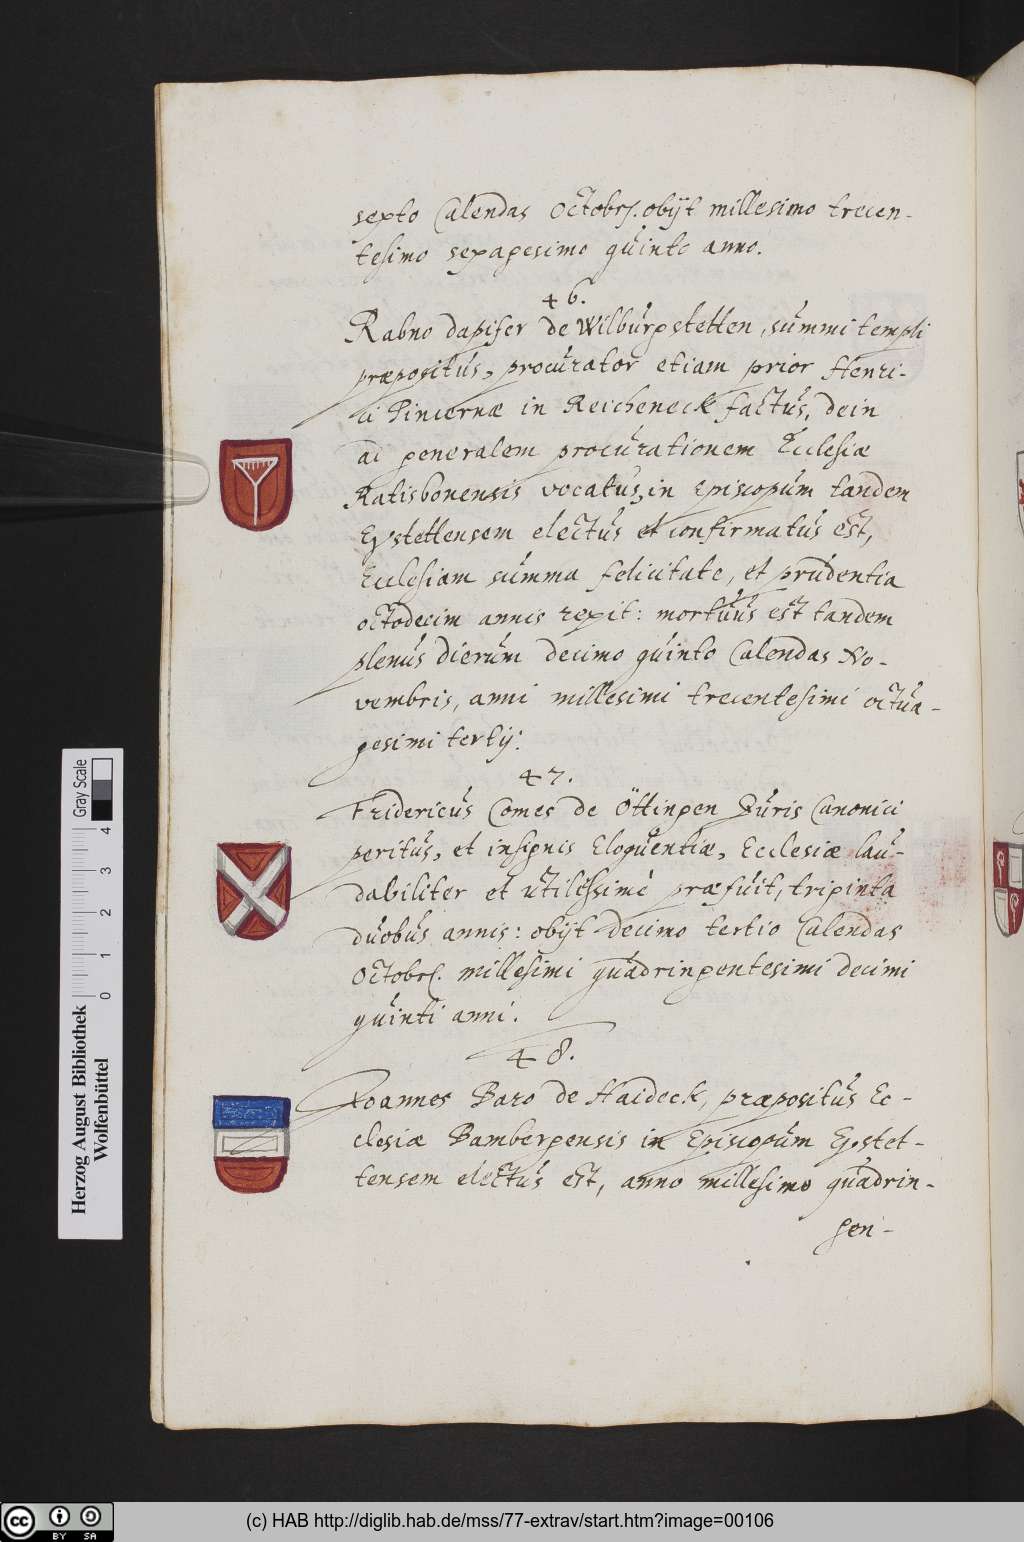 sexto Calendas Octobrs. obijt millesimo trecen-
tesimo sexagesimo quinto anno.
46.
Rabno dapifer de Wilburgstetten, summi templi
præpositus, procurator etiam prior Henri-
ci Pincernæ in Reicheneck factus, dein
ad generalem procurationem Ecclesiæ
Ratisbonensis vocatus, in Episcopum tandem
Eystettensem electus et confirmatus est,
Ecclesiam summa felicitate, et prudentia
octodecim annis rexit: mortuus est tandem
plenus dierum decimo quinto Calendas No-
vembris, anni millesimi trecentesimi octua-
gesimi tertij.
47.
Fridericus Comes de Öttingen Juris Canonici
peritus, et insignis Eloquentiæ, Ecclesiæ lau-
dabiliter et utilissimè præfuit, triginta
duobus annis: obijt decimo tertio Calendas
Octobrs. millesimi quadringentesimi decimi
quinti anni.
48.
Joannes Baro de Haideck, præpositus Ec-
clesiæ Bambergensis in Episcopum Eystet-
tensem electus est, anno millesimo quadrin-
gen-
Herzog August Bibliothek
Wolfenbüttel
Gray Scale
0 1 2 3 4
cc BY SA
(c) HAB http://diglib.hab.de/mss/77-extrav/start.htm?image=00106